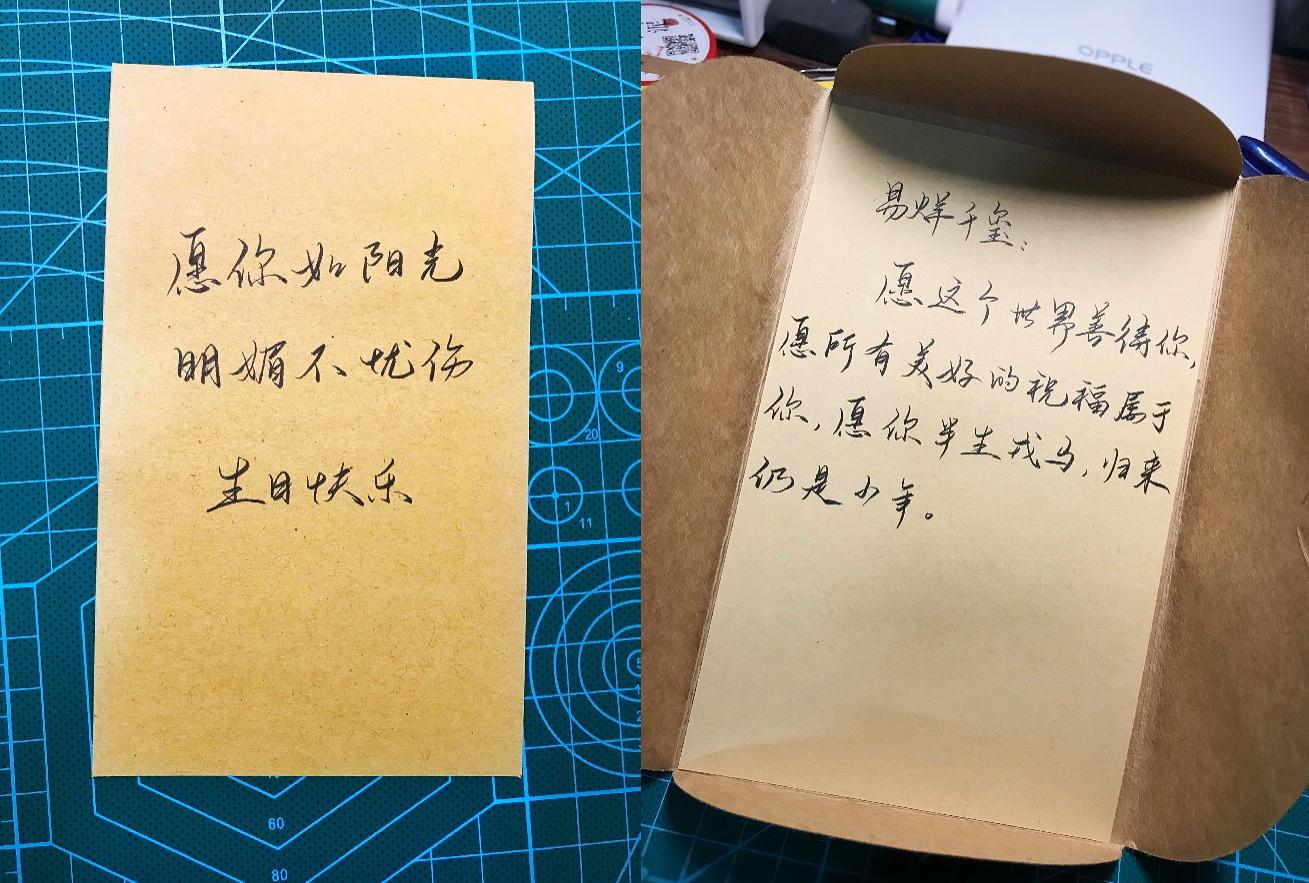 愿你如阳光
明媚不忧伤
生日快乐
OPPLE
易烊千玺:
愿这个世界善待你,
愿所有美好的祝福属于
你,愿你半生戎马,归来
仍是少年。
9
20
1
11
60
80